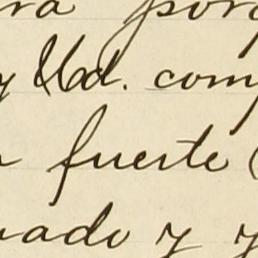 ra por
y Ud. com
fuerte (
ado y y